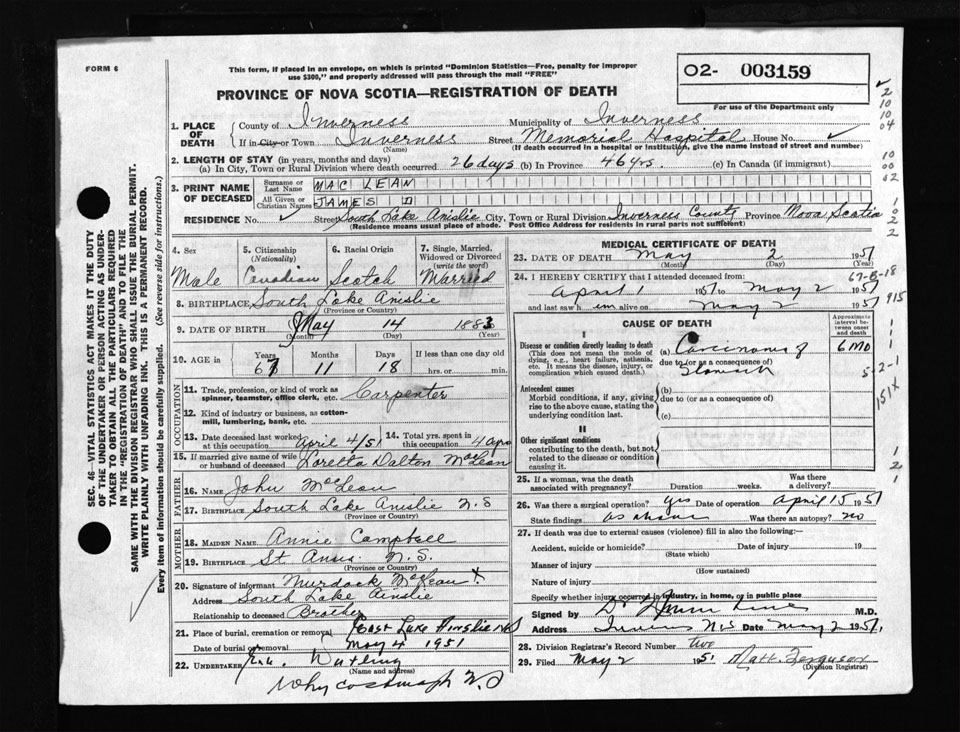 FORM 6
This form, if placed in an envelope, on which is printed "Dominion Statistics—Free, penalty for improper
use $300," and properly addressed will pass through the mail "FREE"
02- 003159
For use of the Department only
PROVINCE OF NOVA SCOTIA—REGISTRATION OF DEATH
1. PLACE OF DEATH County of Inverness Municipality of Inverness
If in City or Town Inverness (Name) Street Memorial Hospital House No.
(If death occurred in a hospital or institution, give the name instead of street and number)
2. LENGTH OF STAY (in years, months and days)
(a) In City, Town or Rural Division where death occurred 26 days (b) In Province 46 yrs. (c) In Canada (if immigrant)
3. PRINT NAME OF DECEASED Surname or Last Name MAC LEAN
All Given or Christian Names JAMES D
RESIDENCE No. Street South Lake Ainslie City, Town or Rural Division Inverness County Province Nova Scotia
(Residence means usual place of abode. Post Office Address for residents in rural parts not sufficient)
4. Sex Male
5. Citizenship (Nationality) Canadian
6. Racial Origin Scotch
7. Single, Married, Widowed or Divorced (write the word) Married
8. BIRTHPLACE South Lake Ainslie
(Province or Country)
9. DATE OF BIRTH May 14 1883
(Month) (Day) (Year)
10. AGE in Years 67 Months 11 Days 18 If less than one day old
hrs. or min.
OCCUPATION
11. Trade, profession, or kind of work as spinner, teamster, office clerk, etc. Carpenter
12. Kind of industry or business, as cotton-mill, lumbering, bank, etc.
13. Date deceased last worked at this occupation April 4/51
14. Total yrs. spent in this occupation
15. If married give name of wife or husband of deceased Loretta Dalton McLean
FATHER
16. NAME John McLean
17. BIRTHPLACE South Lake Ainslie N.S
(Province or Country)
MOTHER
18. MAIDEN NAME Annie Campbell
19. BIRTHPLACE St Anns N.S.
(Province or Country)
20. Signature of informant Murdock McLean X
Address South Lake Ainslie
Relationship to deceased Brother
21. Place of burial, cremation or removal East Lake Ainslie N.S
Date of burial or removal May 4 1951
22. UNDERTAKER
(Name and address)
Whycocomagh N.S
MEDICAL CERTIFICATE OF DEATH
23. DATE OF DEATH May 2 1951
(Month) (Day) (Year)
24. I HEREBY CERTIFY that I attended deceased from
April 1 1951 to May 2 1951
and last saw him alive on May 2 1951
CAUSE OF DEATH
Approximate interval between onset and death
I
Disease or condition directly leading to death
(This does not mean the mode of dying, e.g., heart failure, asthenia, etc. It means the disease, injury, or complication which caused death.)
(a) Carcinoma of Stomach 6 MO
due to (or as a consequence of)
Antecedent causes
Morbid conditions, if any, giving rise to the above cause, stating the underlying condition last.
(b)
due to (or as a consequence of)
(c)
II
Other significant conditions
contributing to the death, but not related to the disease or condition causing it.
25. If a woman, was the death associated with pregnancy? Duration weeks. Was there a delivery?
26. Was there a surgical operation? yes Date of operation April 15 1951
State findings as above Was there an autopsy? no
27. If death was due to external causes (violence) fill in also the following:—
Accident, suicide or homicide? Date of injury 19
(State which)
Manner of injury
(How sustained)
Nature of injury
Specify whether injury occurred in industry, in home, or in public place
Signed by M.D.
Address N.S Date May 2 1951
28. Division Registrar's Record Number two
29. Filed May 2 1951 Matt. Ferguson
(Division Registrar)
SEC. 46—VITAL STATISTICS ACT MAKES IT THE DUTY
OF THE UNDERTAKER OR PERSON ACTING AS UNDER-
TAKER TO OBTAIN ALL THE PARTICULARS REQUIRED
IN THE "REGISTRATION OF DEATH" AND TO FILE THE
SAME WITH THE DIVISION REGISTRAR WHO SHALL ISSUE THE BURIAL PERMIT.
WRITE PLAINLY WITH UNFADING INK. THIS IS A PERMANENT RECORD.
Every item of information should be carefully supplied. (See reverse side for instructions.)
2
10
10
04
10
00
02
10
2
2
915
5-2-1
151X
1
2
1